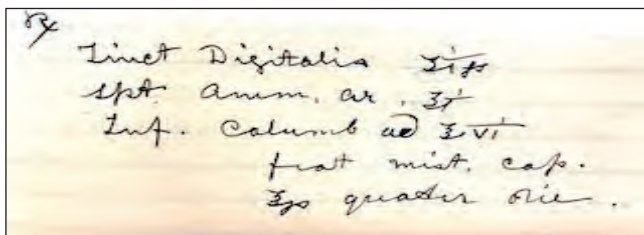 ℞
Tinct Digitalis ʒifs
Spt. Amm. ar. ʒi
Inf. Columb ad ℥vi
fiat mist. cap.
℥fs quater die.